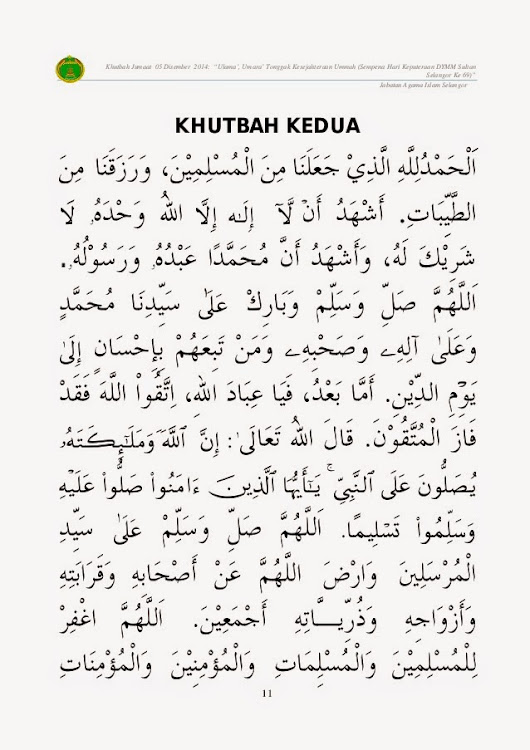 Khutbah Jumaat 05 Disember 2014: "Ulama', Umara' Tonggak Kesejahteraan Ummah (Sempena Hari Keputeraan DYMM Sultan
Selangor Ke 69)"
Jabatan Agama Islam Selangor
KHUTBAH KEDUA
اَلْحَمْدُلِلَّهِ الَّذِيْ جَعَلَنَا مِنَ الْمُسْلِمِيْنَ، وَرَزَقَنَا مِنَ
الطَّيِّبَاتِ. أَشْهَدُ أَنْ لَّآ إِلَـٰهَ إِلَّا اللهُ وَحْدَهُۥ لَا
شَرِيْكَ لَهُ، وَأَشْهَدُ أَنَّ مُحَمَّدًا عَبْدُهُۥ وَرَسُوْلُهُۥ.
اَللَّهُمَّ صَلِّ وَسَلِّمْ وَبَارِكْ عَلَىٰ سَيِّدِنَا مُحَمَّدٍ
وَعَلَىٰ آلِهِۦ وَصَحْبِهِۦ وَمَنْ تَبِعَهُمْ بِإِحْسَانٍ إِلَىٰ
يَوْمِ الدِّيْنِ. أَمَّا بَعْدُ، فَيَا عِبَادَ اللهِ، اِتَّقُواْ اللَّهَ فَقَدْ
فَازَ الْمُتَّقُوْنَ. قَالَ اللهُ تَعَالَىٰ: إِنَّ ٱللَّهَ وَمَلَـٰٓئِكَتَهُۥ
يُصَلُّونَ عَلَى ٱلنَّبِىِّ ۚ يَـٰٓأَيُّهَا ٱلَّذِينَ ءَامَنُواْ صَلُّواْ عَلَيْهِ
وَسَلِّمُواْ تَسْلِيمًا. اَللَّهُمَّ صَلِّ وَسَلِّمْ عَلَىٰ سَيِّدِ
الْمُرْسَلِينَ وَارْضَ اللَّهُمَّ عَنْ أَصْحَابِهِ وَقَرَابَتِهِ
وَأَزْوَاجِهِ وَذُرِّيَّـــاتِهِ أَجْمَعِيْنَ. اَللَّهُمَّ اغْفِرْ
لِلْمُسْلِمِيْنَ وَالْمُسْلِمَاتِ وَالْمُؤْمِنِيْنَ وَالْمُؤْمِنَاتِ
11